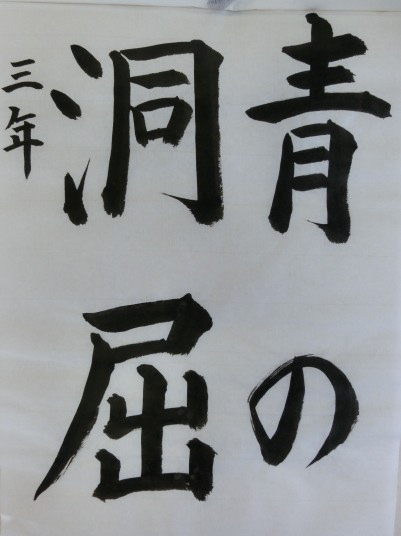 青の
洞屈
三年